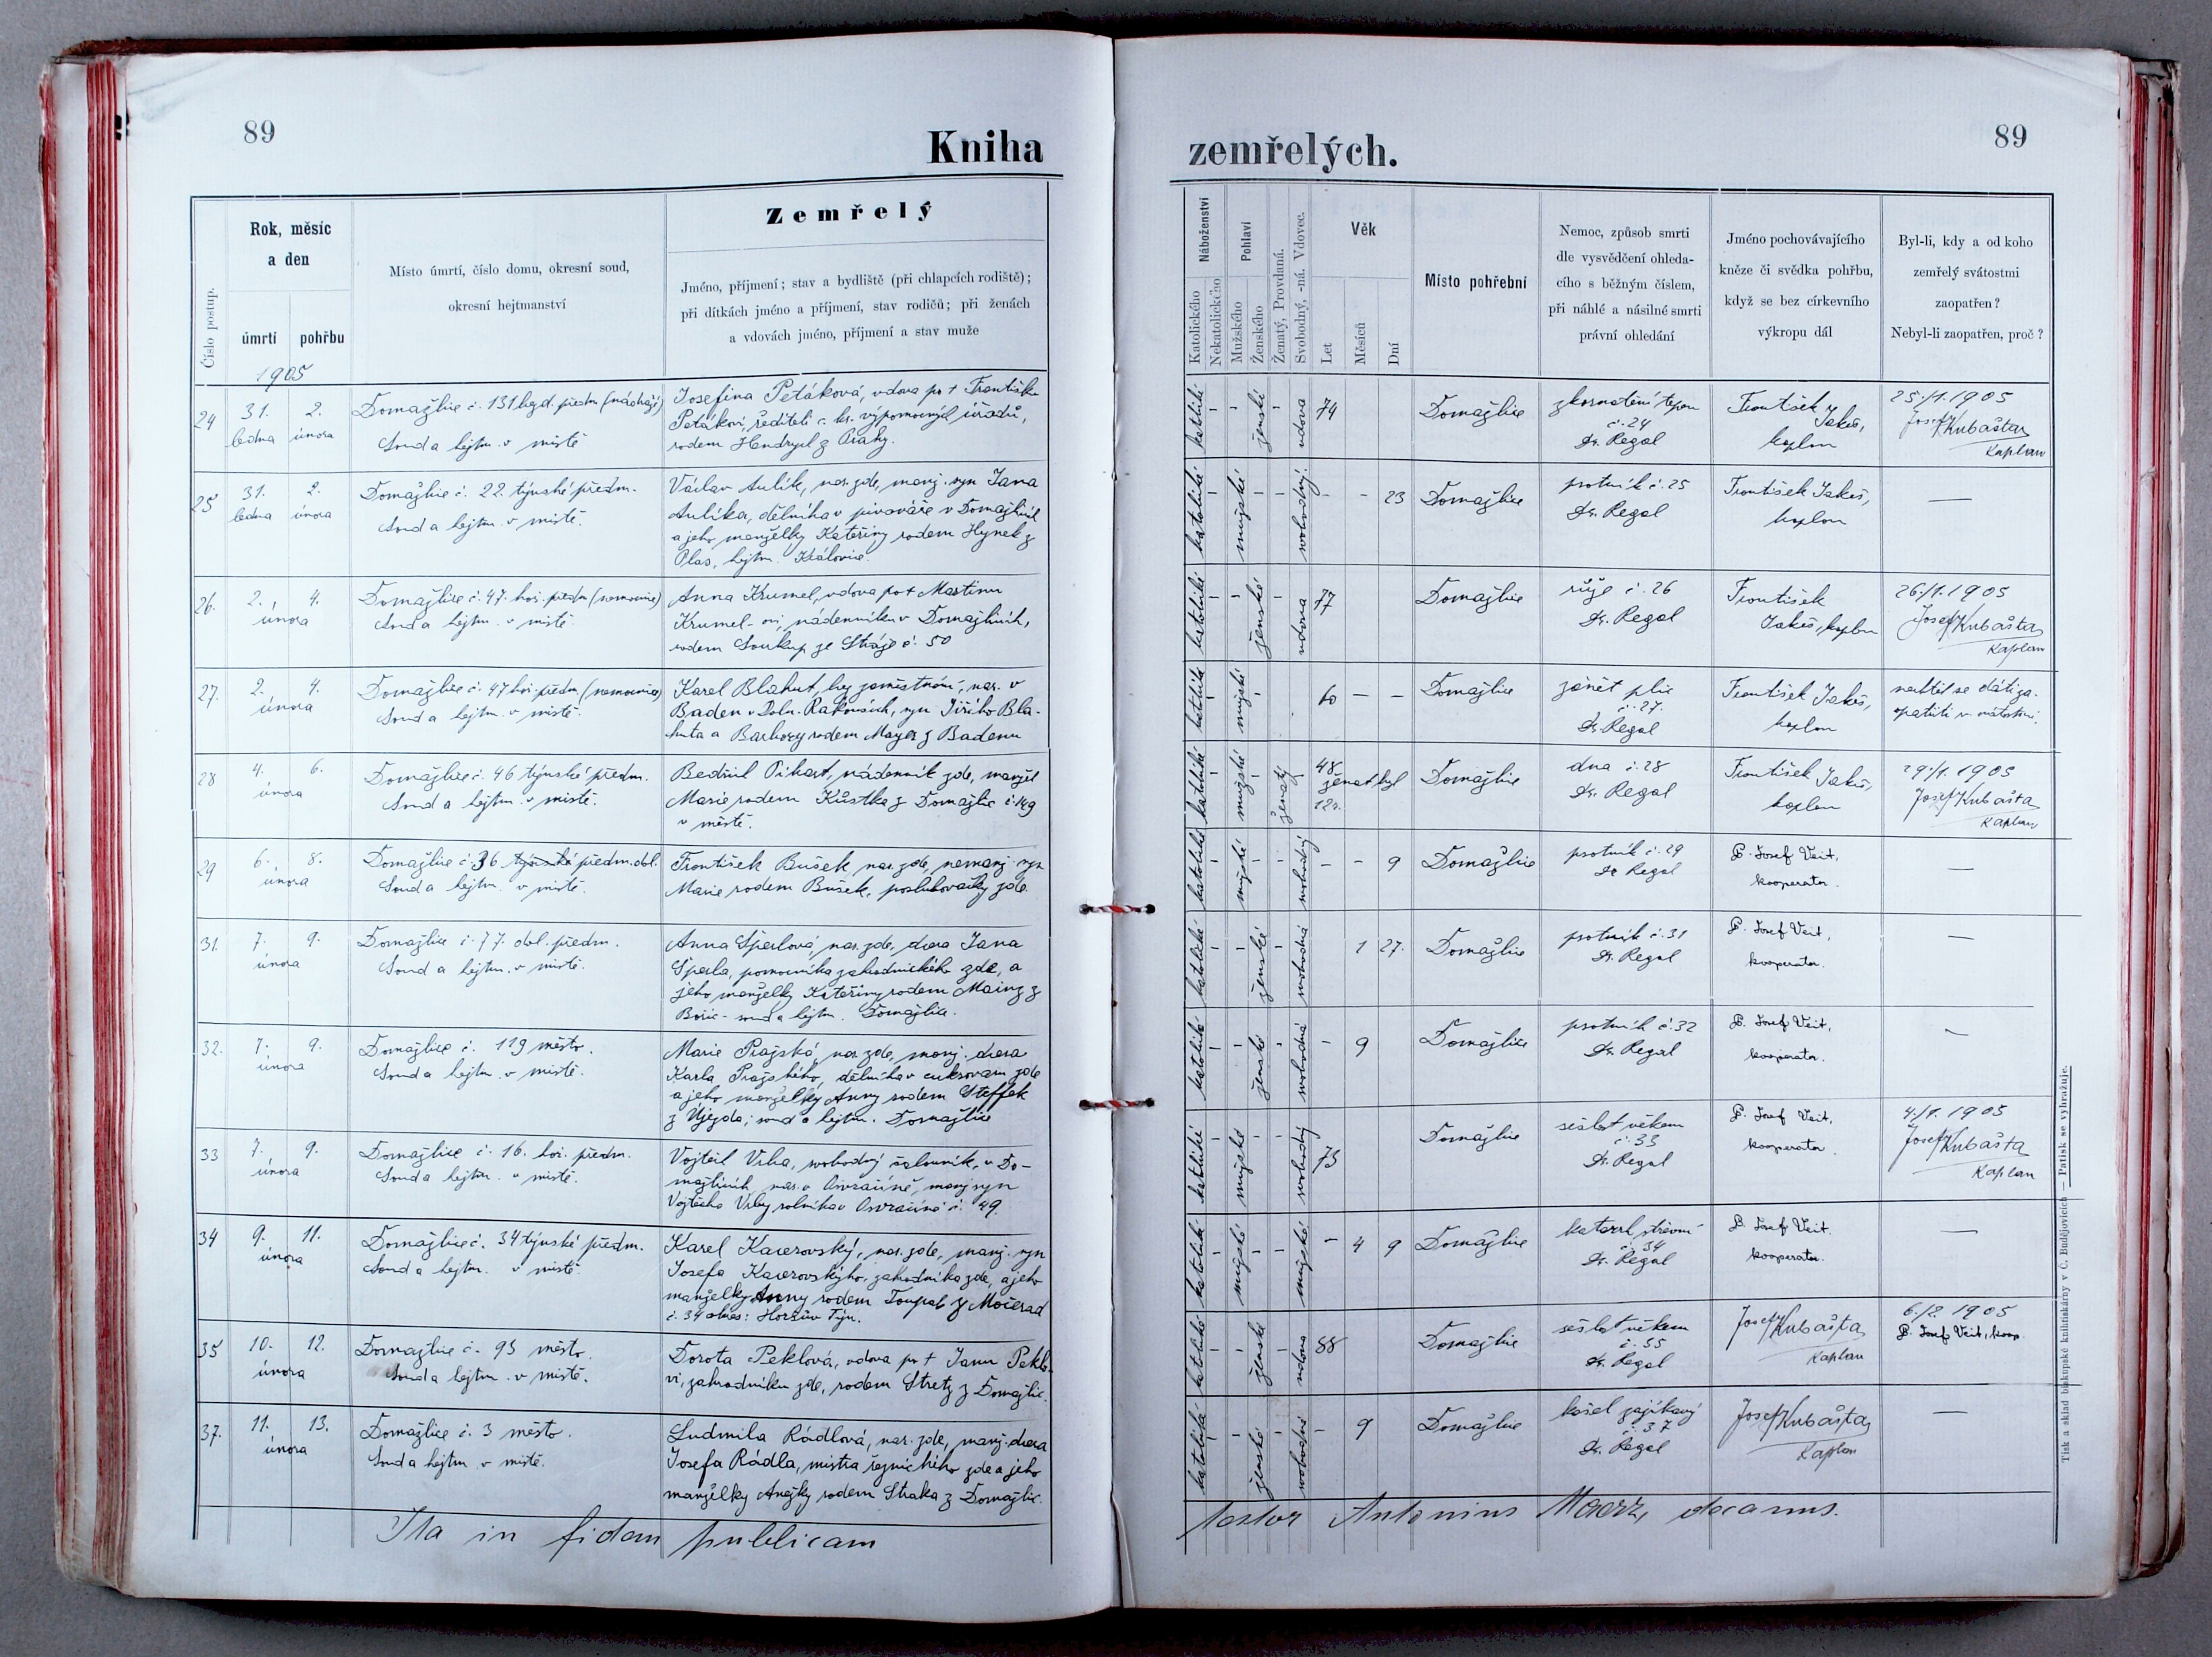 89
Kniha
Číslo postup.
Rok, měsíc
a den
úmrtí
pohřbu
Místo úmrtí, číslo domu, okresní soud,
okresní hejtmanství
Zemřelý
Jméno, příjmení; stav a bydliště (při chlapcích rodiště);
při dítkách jméno a příjmení, stav rodičů; při ženách
a vdovách jméno, příjmení a stav muže
1905
24
31. 2.
ledna února
Domažlice č. 131 předm.
Soud a hejtm. v místě
Josefina Petáková, vdova po † Františku
Petákovi, řediteli c. kr. výpomocných úřadů,
rodem z Prahy.
25
31. 2.
ledna února
Domažlice č. 22. týnské předm.
Soud a hejtm. v místě.
Václav Aulík, nar. zde, manž. syn Jana
Aulíka, dělníka v pivováře v Domažlicích
a jeho manželky Kateřiny rodem Hynek z
Plas, hejtm. Kralovice.
26.
2. 4.
února
Domažlice č. 47. hoř. předm. (nemocnice)
Soud a hejtm. v místě
Anna Krumel, vdova po † Martinu
Krumel-ovi, nádenníku v Domažlicích,
rodem Soukup ze Stráže č. 50
27.
2. 4.
února
Domažlice č. 47 hoř. předm. (nemocnice)
Soud a hejtm. v místě.
Karel Blahut, bez zaměstnání, nar. v
Baden v Doln. Rakousích, syn Jiřího Bla-
huta a Barbory rodem Mayer z Badenu
28
4. 6.
února
Domažlice č. 46 týnské předm.
Soud a hejtm. v místě.
Bedřich Pihart, nádenník zde, manžel
Marie rodem Kůstka z Domažlic č. 149
v městě.
29
6. 8.
února
Domažlice č. 36 týnské předm. dol.
Soud a hejtm. v místě.
František Bušek, nar. zde, nemanž. syn
Marie rodem Bušek, posluhovačky zde
31.
7. 9.
února
Domažlice č. 77. dol. předm.
Soud a hejtm. v místě.
Anna Šperlová, nar. zde, dcera Jana
Šperla, pomocníka zahradnického zde, a
jeho manželky Kateřiny rodem Mainz z
Bořic - soud a hejtm. Domažlice.
32.
7. 9.
února
Domažlice č. 119 město.
Soud a hejtm. v místě.
Marie Pražská, nar. zde, manž. dcera
Karla Pražského, dělníka v cukrovaru zde
a jeho manželky Anny rodem Steffek
z Újezda; soud a hejtm. Domažlice
33
7. 9.
února
Domažlice č. 16. hoř. předm.
Soud a hejtm. v místě.
Vojtěch Vrba, svobodný čalouník, v Do-
mažlicích nar. v Osvračíně, manž. syn
Vojtěcha Vrby rolníka v Osvračíně č. 49.
34
9. 11.
února
Domažlice č. 34 týnské předm.
Soud a hejtm. v místě.
Karel Kacerovský, nar. zde, manž. syn
Josefa Kacerovského, zahradníka zde, a jeho
manželky Anny rodem Toupal z Močerad
č. 34 okres: Horšův Týn.
35
10. 12.
února
Domažlice č. 93 město.
Soud a hejtm. v místě.
Dorota Peklová, vdova po † Janu Peklo-
vi, zahradníku zde, rodem Stretz z Domažlic.
37.
11. 13.
února
Domažlice č. 3 město.
Soud a hejtm. v místě.
Ludmila Rádlová, nar. zde, manž. dcera
Josefa Rádla, mistra řeznického zde a jeho
manželky Anežky rodem Straka z Domažlic.
Ita in fidem publicam
89
zemřelých.
Náboženství
Katolického
Nekatolického
Pohlaví
Mužského
Ženského
Ženatý, Provdaná.
Svobodný, -ná. Vdovec.
Věk
Let
Měsíců
Dní
Místo pohřební
Nemoc, způsob smrti
dle vysvědčení ohleda-
cího s běžným číslem,
při náhlé a násilné smrti
právní ohledání
Jméno pochovávajícího
kněze či svědka pohřbu,
když se bez církevního
výkropu dál
Byl-li, kdy a od koho
zemřelý svátostmi
zaopatřen?
Nebyl-li zaopatřen, proč?
katolické - - ženské - vdova 74
Domažlice
zkornatění tepen
č. 24
Dr. Regal
František Jakeš,
kaplan
25./1. 1905
Josef Kubašta
Kaplan
katolické - mužské - - svobodný - - 23
Domažlice
psotník č. 25
Dr. Regal
František Jakeš,
kaplan
—
katolické - - ženské - vdova 77
Domažlice
růže č. 26
Dr. Regal
František
Jakeš, kaplan
26./1. 1905
Josef Kubašta
Kaplan
katolické - mužské - 60 — —
Domažlice
zánět plic
č. 27.
Dr. Regal
František Jakeš,
kaplan
nechtěl se dáti za-
opatřiti sv. svátostmi.
katolické - mužské - ženatý 48
ženat byl
12 r.
Domažlice
dna č. 28
Dr. Regal
František Jakeš,
kaplan
29./1. 1905
Josef Kubašta
Kaplan
katolické - mužské - - svobodný - - 9
Domažlice
psotník č. 29
Dr. Regal
P. Josef Veit,
kooperator.
—
katolické - - ženské - svobodná 1 27.
Domažlice
psotník č. 31
Dr. Regal
P. Josef Veit,
kooperator.
—
katolické - - ženské - svobodná - 9
Domažlice
psotník č. 32
Dr. Regal
P. Josef Veit,
kooperator.
—
katolické - mužské - - svobodný 73
Domažlice
sešlost věkem
č. 33
Dr. Regal
P. Josef Veit,
kooperator.
4./1. 1905
Josef Kubašta
Kaplan
katolické - mužské - - mužské - 4 9
Domažlice
katarrh střevní
č. 34
Dr. Regal
P. Josef Veit.
kooperator.
—
katolické - - ženské - vdova 88
Domažlice
sešlost věkem
č. 35
Dr. Regal
Josef Kubašta
Kaplan
6./2. 1905
P. Josef Veit, koop.
katolická - - ženské - svobodná - 9
Domažlice
kašel zajíkavý
č. 37
Dr. Regal
Josef Kubašta
Kaplan
—
testor Antonius decanus.
Tisk a sklad biskupské knihtiskárny v Č. Budějovicích — Patisk se vyhražuje.